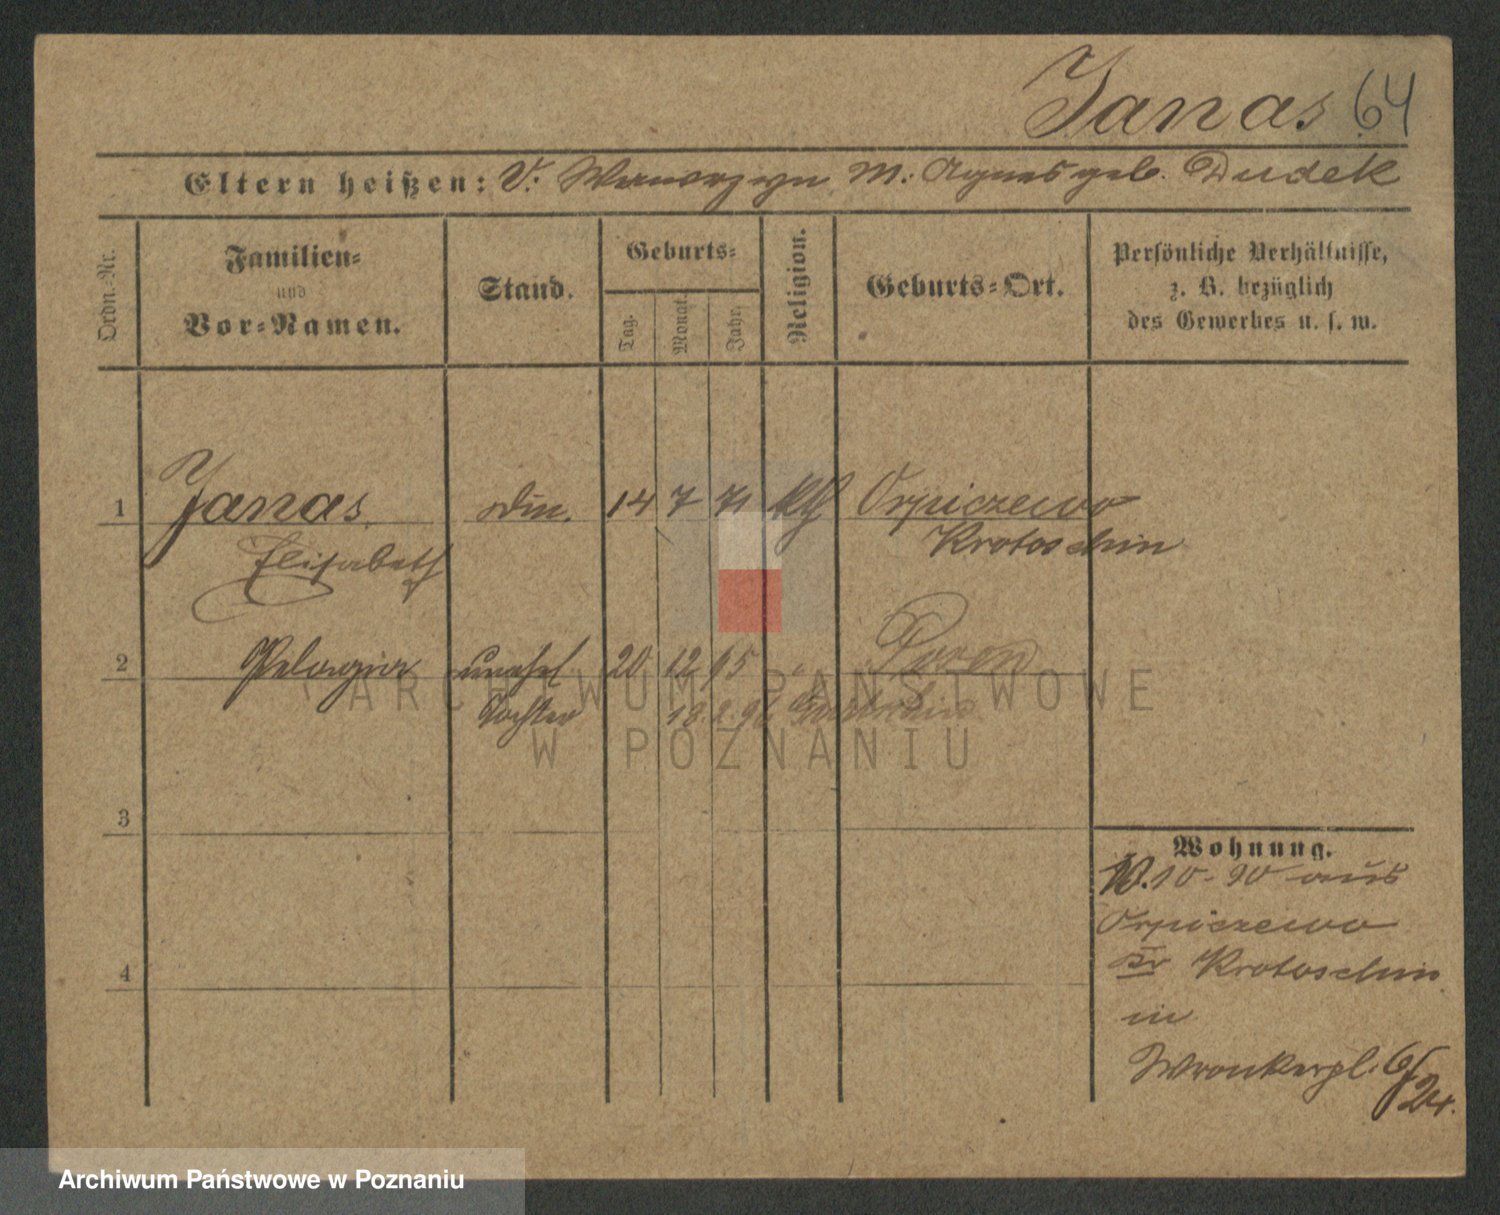 Janas 64
Eltern heißen: V: Wawrzyn M: Agnes geb. Dudek
Ordn.-Nr.
Familien-
und
Vor-Namen.
Stand.
Geburts-
Tag. Monat. Jahr.
Religion.
Geburts-Ort.
Persönliche Verhältnisse,
z. B. bezüglich
des Gewerbes u. s. w.
1 Janas. 14 7 71 kth Orpiczewo
Elisabeth Krotoschin
2 Pelagia unehel. 20 12 95 " Posen
Tochter 18. 2. 96
3
4
Wohnung.
10.10.90 aus
Orpiczewo
Kr Krotoschin
in
Wronkerpl. 6/
24.
ARCHIWUM PAŃSTWOWE
W POZNANIU
Archiwum Państwowe w Poznaniu